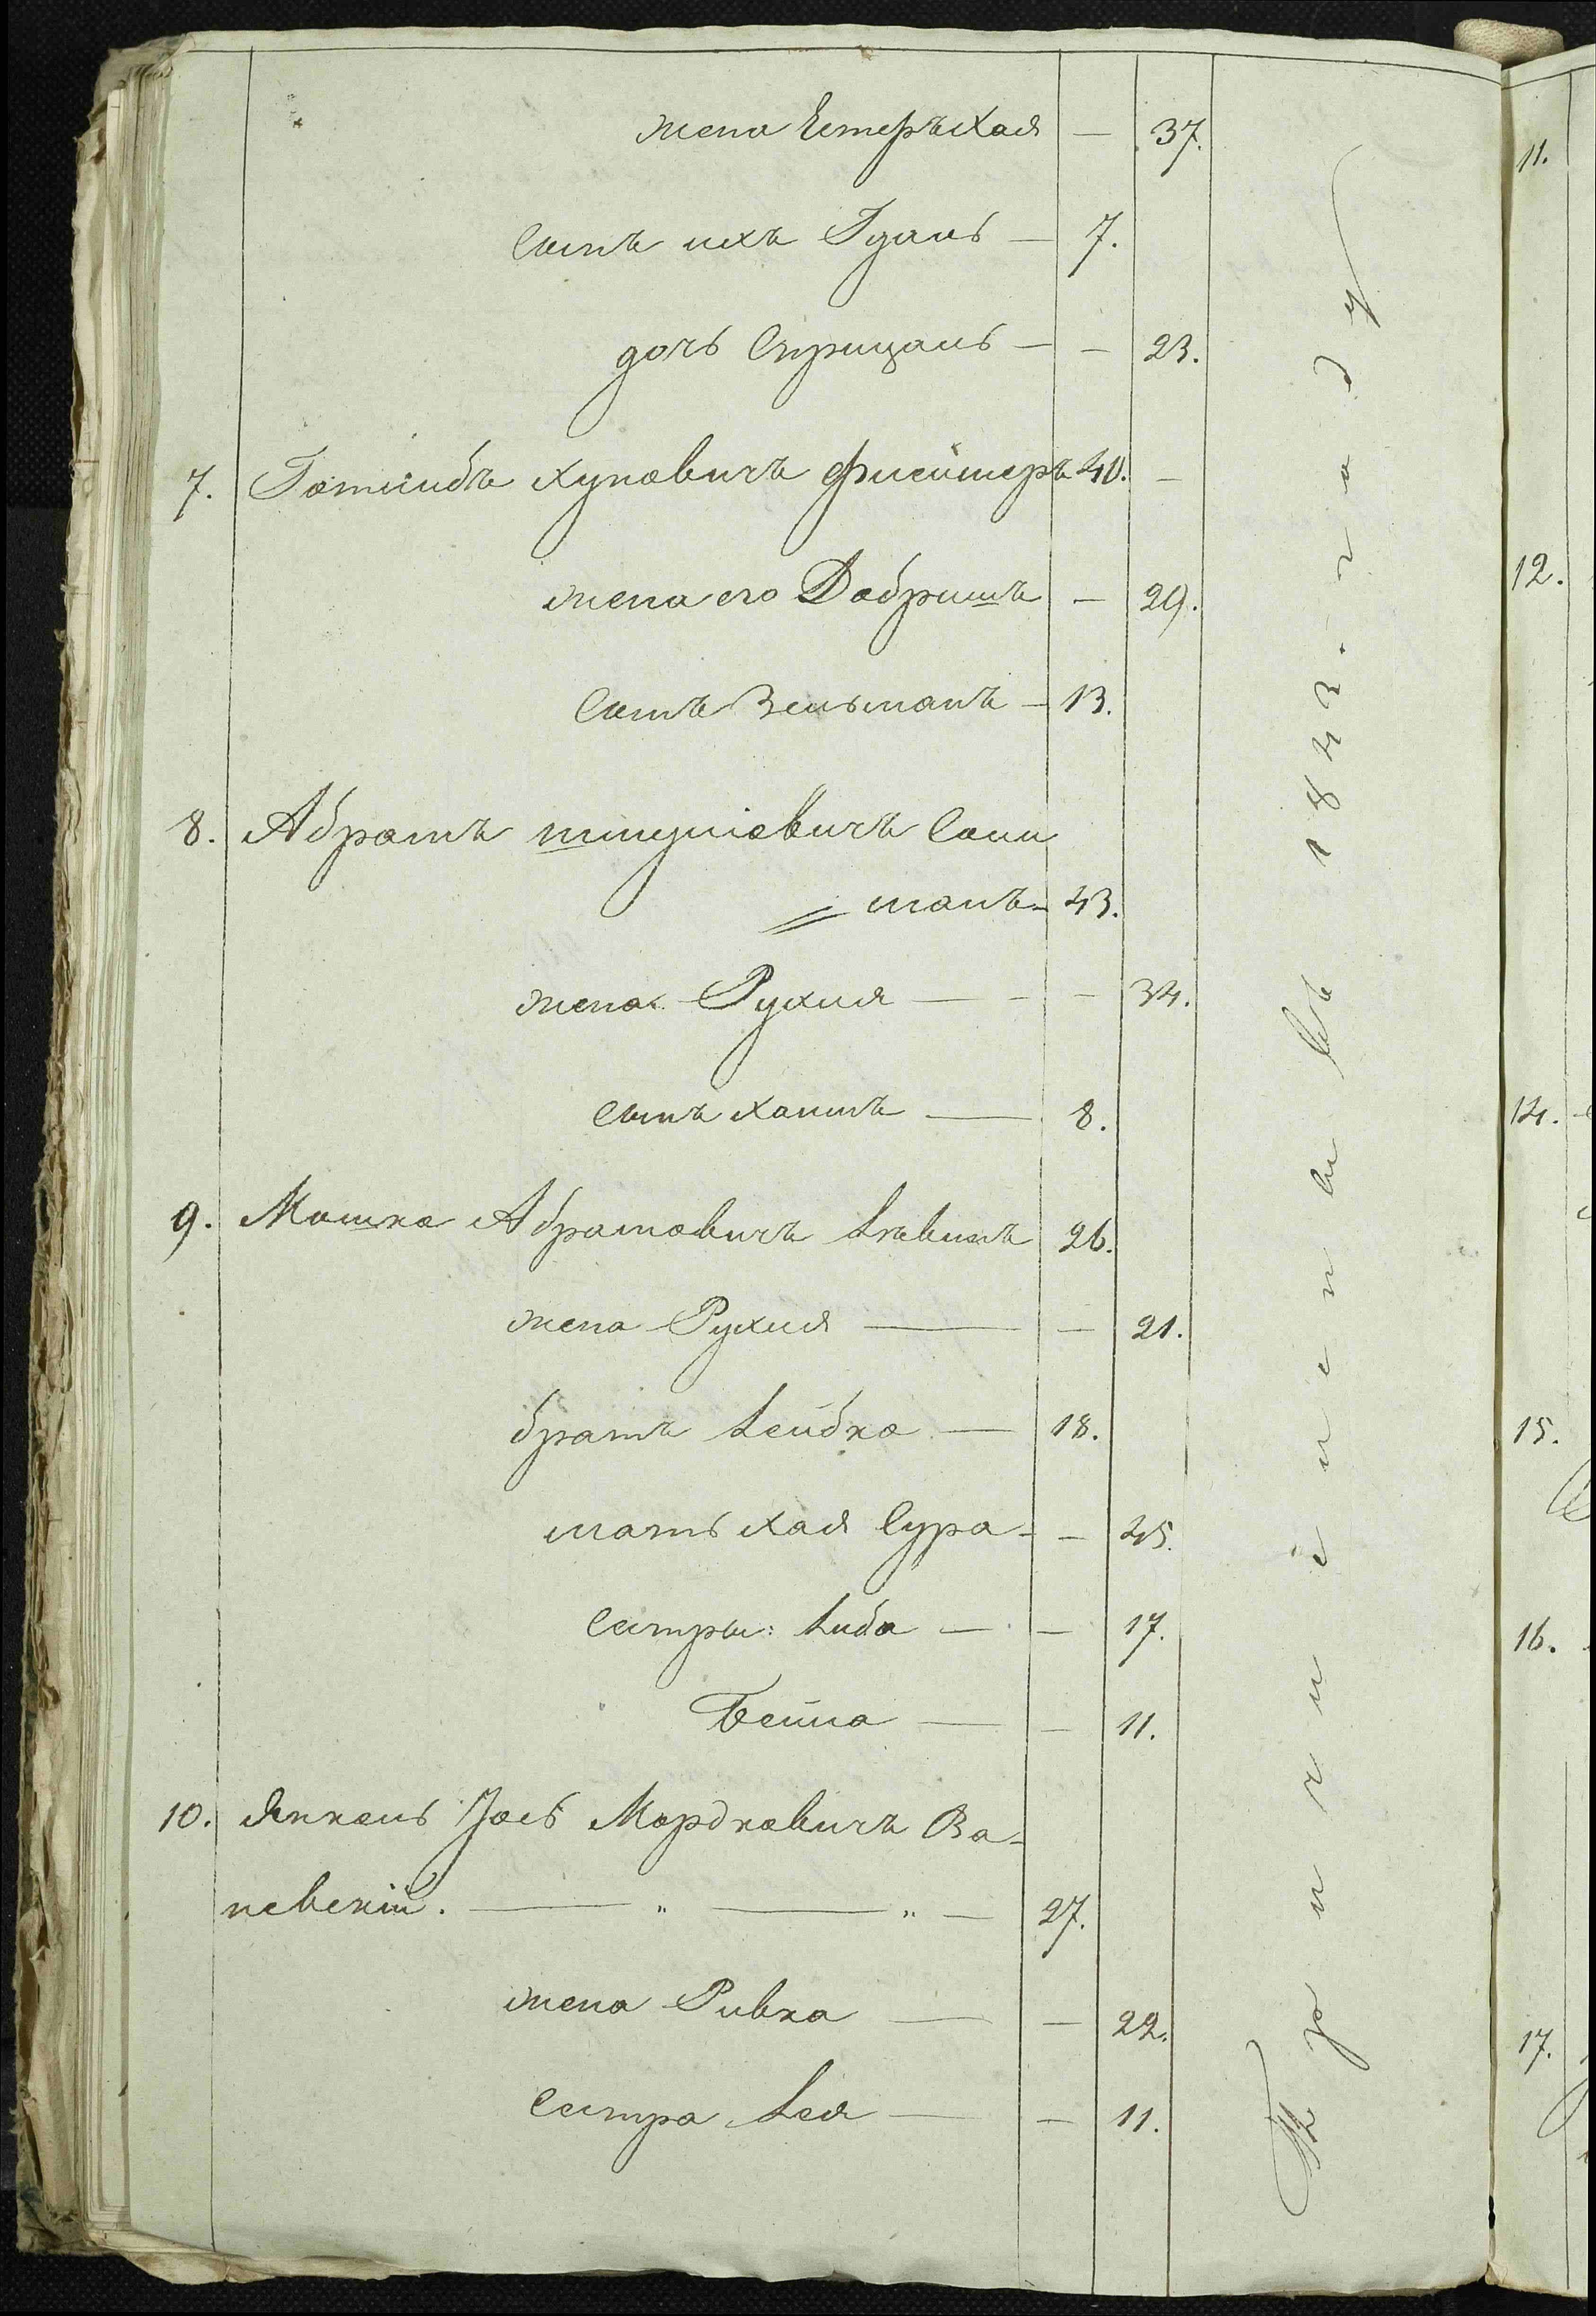 жена Естеръ Хая — 37.
Сынъ ихъ Гдаль — 7.
дочь Сприцаль — — 23.
7. Готлибъ Хуновичъ Флейшеръ 40. —
жена его Добришъ — 29.
Сынъ Зельманъ — 13.
8. Абрамъ Шмуйловичъ Соли
= манъ — 43.
жена Рухля — — — 34.
Сынъ Хаимъ — 8.
9. Мошко Абрамовичъ Лѣвинъ 26.
жена Рухля — — 21.
братъ Лейбко — 18.
мать Хая Сура — — 45.
Сестры: Либа — — 17.
Бейла — — 11.
10. Янкель Іось Мордковичъ Ва-
невскій. — " — " — 27.
жена Ривка — — 22.
Сестра Лея — — 11.
Причислены въ 1843. году
11.
12.
14.
15.
16.
17.